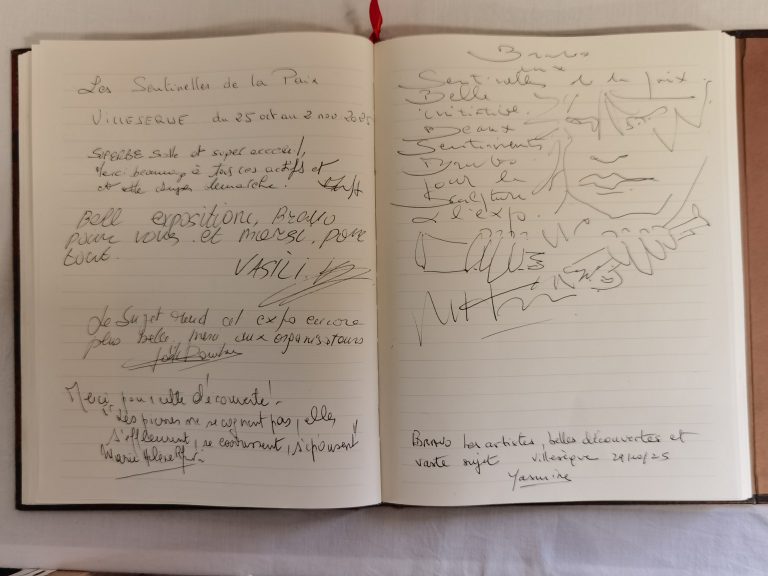 Les Sentinelles de la Paix
VILLESEQUE du 25 oct au 2 nov 2025
SUPERBE Salle et super accueil,
Merci beaucoup à tous ces actifs et
et cette super démarche.
Bell exposition, Bravo
pour vous et mersi, pour
tout.
VASILI
Le sujet rend cet expo encore
plus belle, merci aux organisateurs
Merci pour cette découverte !
"Les pierres ne se cognent pas, elles
s'effleurent, se construisent, s'épousent"
Marie Hélène
Bravo
aux
Sentinelles de la paix.
Belle
initiative.
Beaux
Sentiments.
Bravo
pour la
Sculpture
& l'expo.
BRAVO Les artistes, belles découvertes et
vaste sujet Villesèque 29/10/25
Yasmine